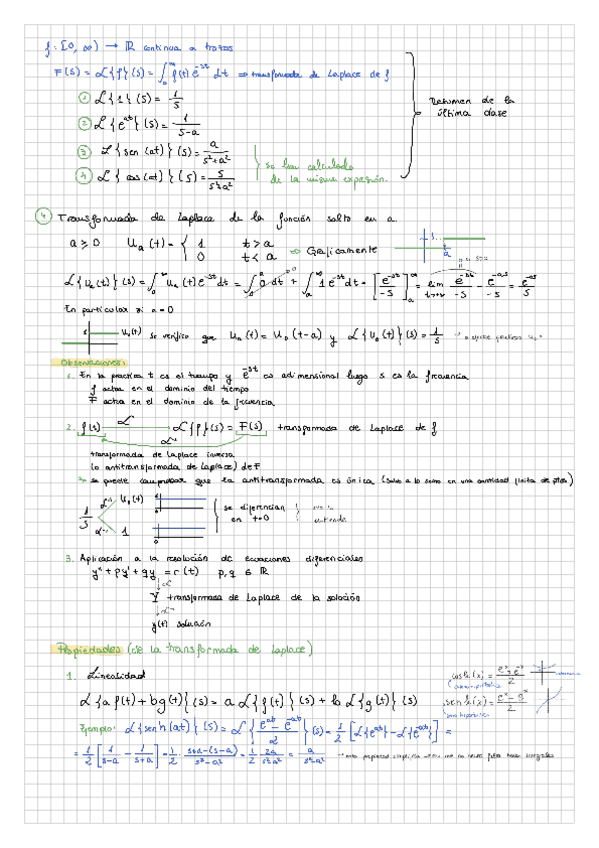 f: [0, ∞) → ℝ continua a trozos
F(s) = ℒ{f}(s) = ∫₀^∞ f(t) e^{-st} dt ⇒ transformada de Laplace de f
① ℒ{1}(s) = 1/s
② ℒ{e^{at}}(s) = 1/(s-a)
③ ℒ{sen(at)}(s) = a/(s²+a²)
④ ℒ{cos(at)}(s) = s/(s²+a²)
se han calculado
de la misma expresión.
Resumen de la
última clase
④ Transformada de Laplace de la función salto en a.
a ≥ 0 Uₐ(t) = { 1 t > a
0 t < a
⇒ Gráficamente
ℒ{Uₐ(t)}(s) = ∫₀^∞ Uₐ(t) e^{-st} dt = ∫₀^a 0 dt + ∫ₐ^∞ 1 e^{-st} dt = [e^{-st}/-s]ₐ^∞ = lim t→∞ e^{-st}/-s - e^{-as}/-s = e^{-as}/s
En particular si a = 0
U₀(t) se verifica que Uₐ(t) = U₀(t-a) y ℒ{U₀(t)}(s) = 1/s
Observaciones:
1. En la practica t es el tiempo y e^{-st} es adimensional luego s es la frecuencia
f actua en el dominio del tiempo
F actua en el dominio de la frecuencia
2. f(t) ℒ ℒ{f}(s) = F(s) transformada de Laplace de f
ℒ⁻¹
transformada de Laplace inversa
(o antitransformada de Laplace) de F
se puede comprobar que la antitransformada es única (salvo a lo sumo en una cantidad finita de ptos)
1/s ℒ⁻¹ U₀(t)
ℒ⁻¹ 1
se diferencian
en t=0
3. Aplicación a la resolución de ecuaciones diferenciales
y'' + py' + qy = r(t) p, q ∈ ℝ
↓ℒ
Y transformada de Laplace de la solución
↓ℒ⁻¹
y(t) solución
Propiedades (de la transformada de Laplace)
1. Linealidad
ℒ{a f(t) + b g(t)}(s) = a ℒ{f}(s) + b ℒ{g(t)}(s)
cosh(x) = (e^x + e^{-x})/2
senh(x) = (e^x - e^{-x})/2
Ejemplo: ℒ{senh(at)}(s) = ℒ{(e^{at} - e^{-at})/2}(s) = 1/2 [ℒ{e^{at}} - ℒ{e^{-at}}] =
= 1/2 [1/(s-a) - 1/(s+a)] = 1/2 · (s+a-(s-a))/(s²-a²) = 1/2 · 2a/(s²-a²) = a/(s²-a²)